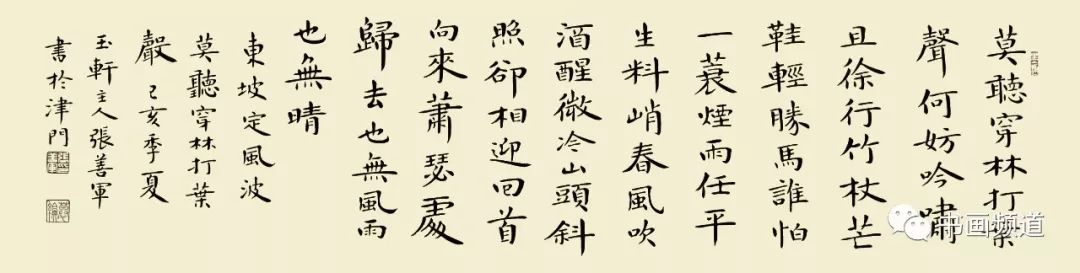 莫聽穿林打葉
聲何妨吟嘯
且徐行竹杖芒
鞋輕勝馬誰怕
一蓑煙雨任平
生料峭春風吹
酒醒微冷山頭斜
照卻相迎回首
向來蕭瑟處
歸去也無風雨
也無晴
東坡定風波
莫聽穿林打葉
聲 己亥季夏
玉軒主人張善軍
書於津門
书画频道